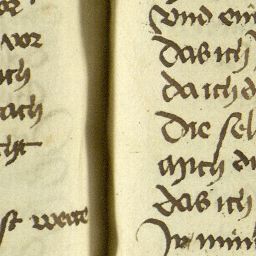 vor
ich
nach
cht
st weite
Vnd ein
Das ich
da ich d
Die sel
Mich di
das ich
Ir min